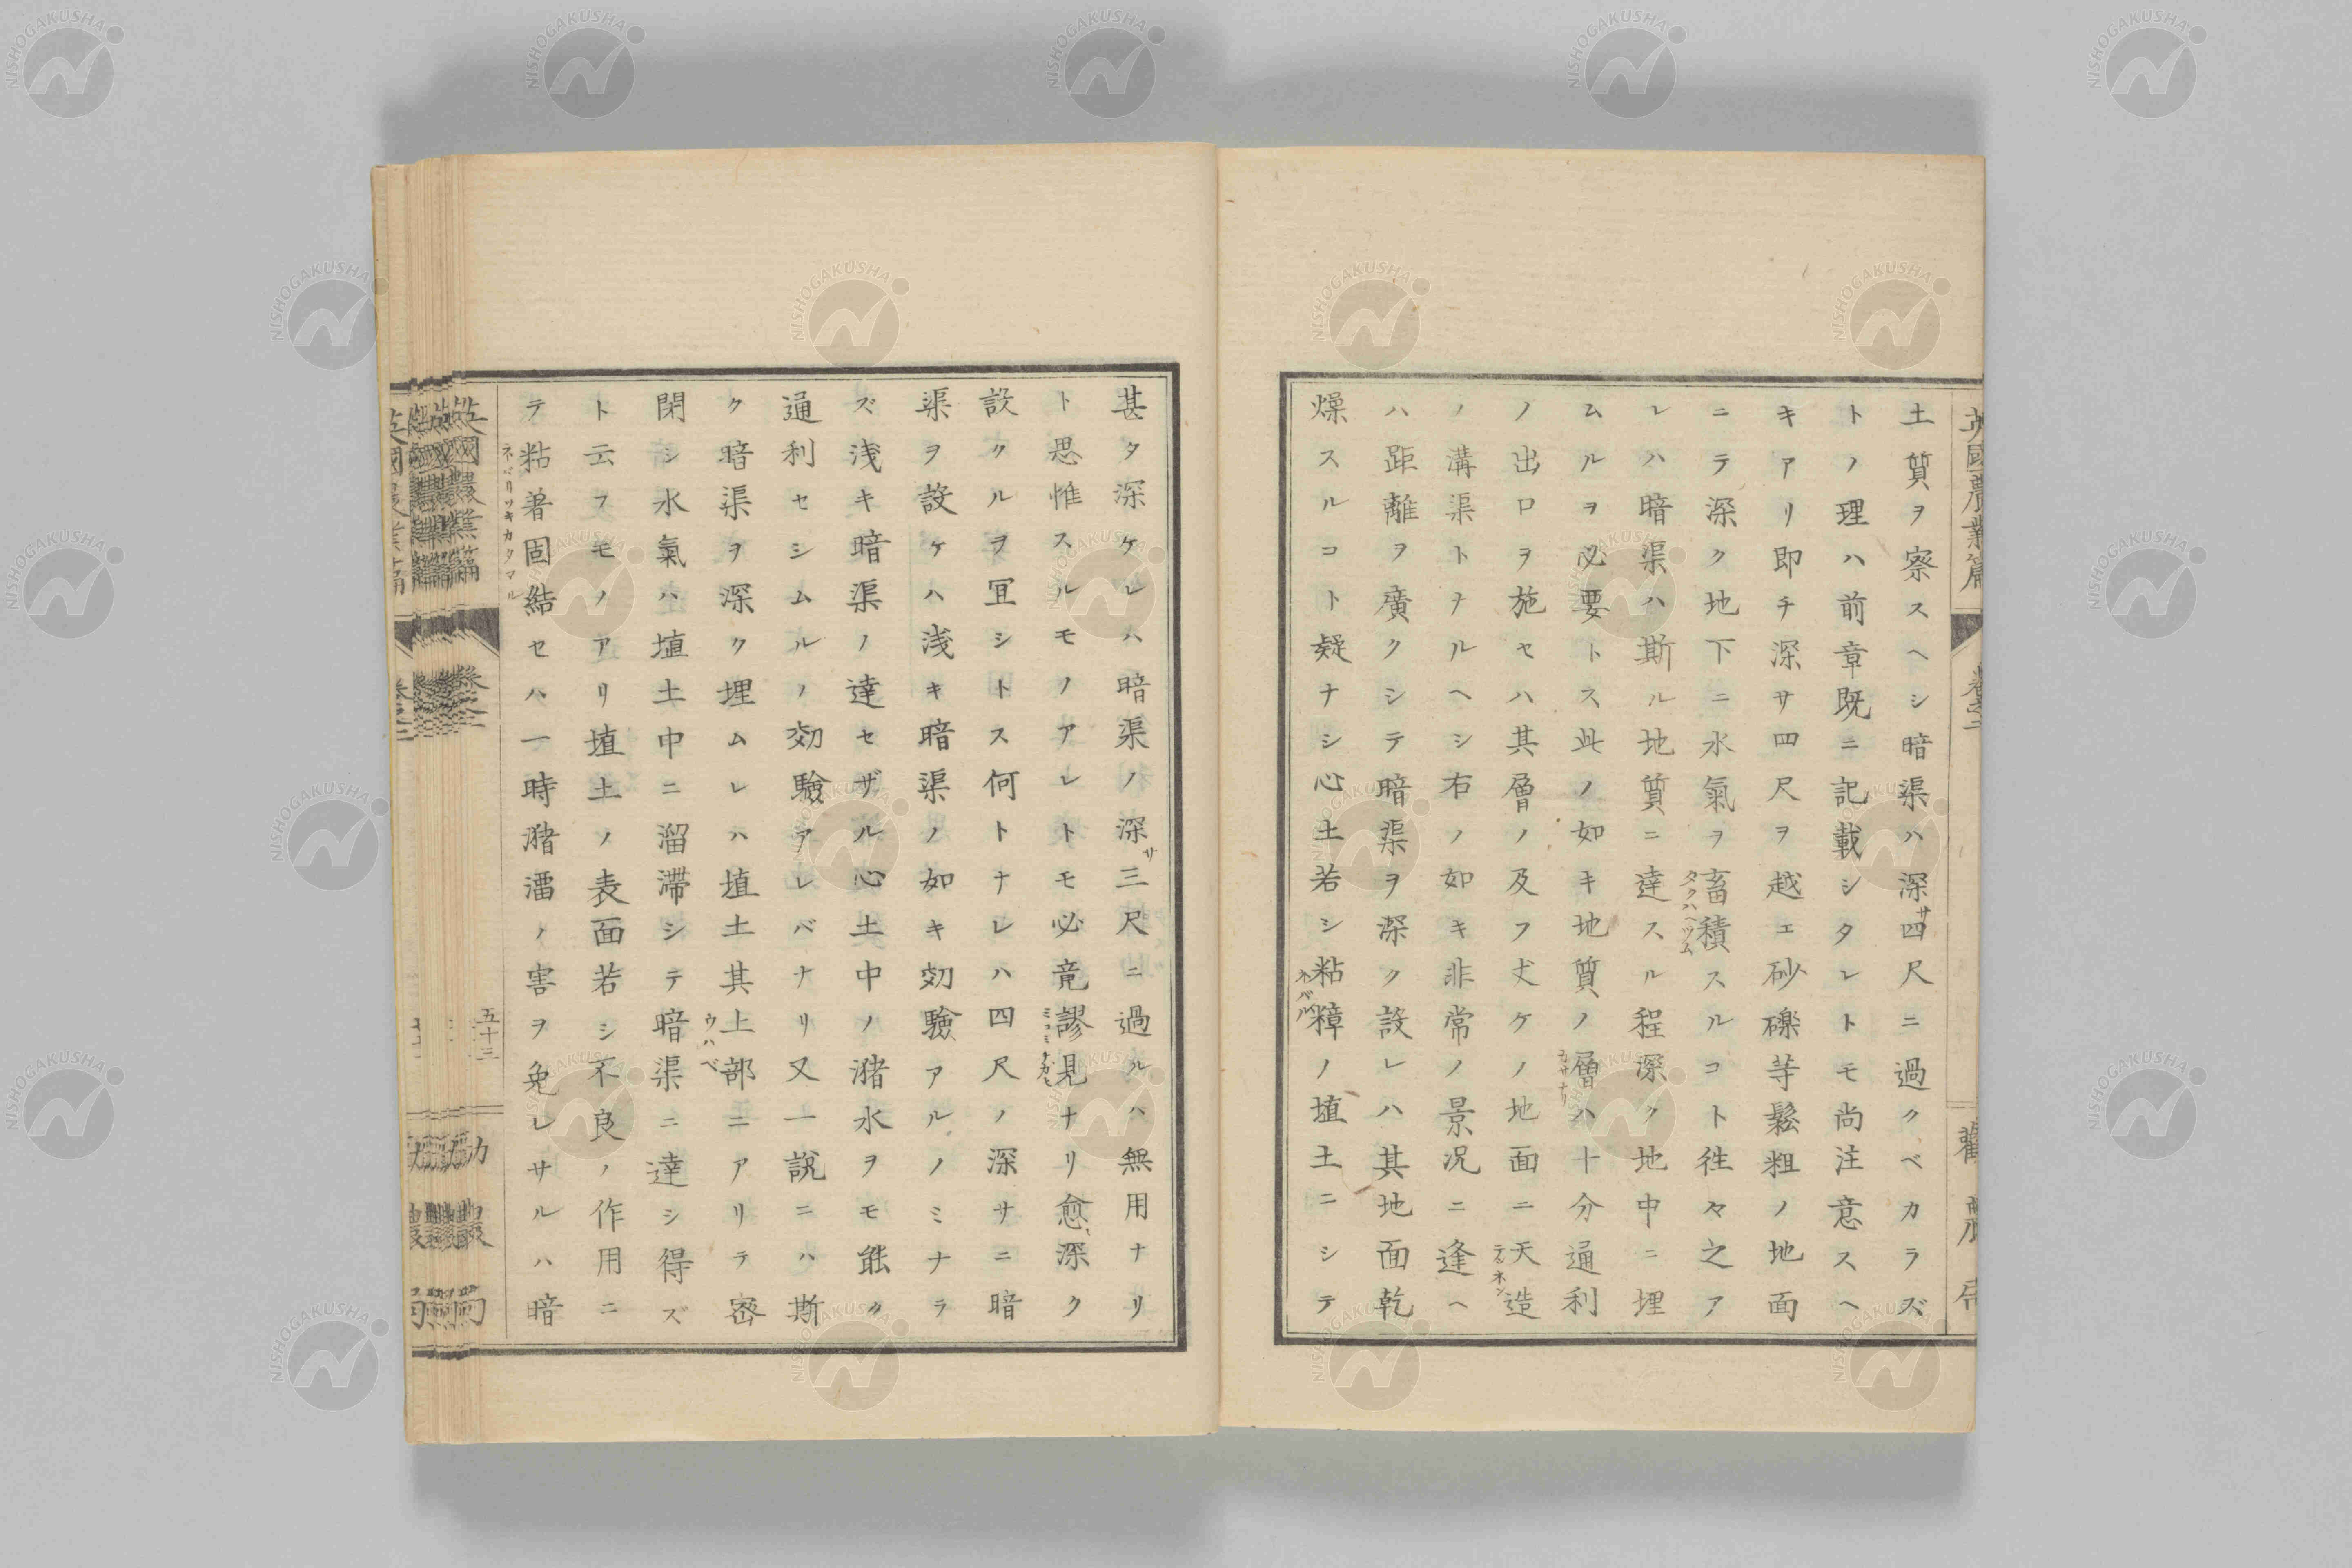 土質ヲ察スヘシ暗渠ハ深サ四尺ニ過クベカラズ
トノ理ハ前章既ニ記載シタレトモ尚注意スヘ
キアリ即チ深サ四尺ヲ越エ砂礫等鬆粗ノ地面
ニテ深ク地下ニ水氣ヲ畜積スルコト徃々之ア
タクハヘツム
レハ暗渠ハ斯ル地質ニ達スル程深ク地中ニ埋
ムルヲ必要トス此ノ如キ地質ノ層ハ十分通利
カサナリ
ノ出口ヲ施セハ其層ノ及フ丈ケノ地面ニ天造
テンネン
ノ溝渠トナルヘシ右ノ如キ非常ノ景况ニ逢ヘ
ハ距離ヲ廣クシテ暗渠ヲ深ク設レハ其地面乾
燥スルコト疑ナシ心土若シ粘糠ノ埴土ニシテ
ネバル
甚タ深ケレハ暗渠ノ深サ三尺ニ過ルハ無用ナリ
ト思惟スルモノアレトモ必竟謬見ナリ愈〻深ク
設クルヲ冝シトス何トナレハ四尺ノ深サニ暗
渠ヲ設ケハ浅キ暗渠ノ如キ効驗アルノミナラ
ズ浅キ暗渠ノ達セザル心土中ノ瀦水ヲモ能ク
通利セシムルノ効驗アレバナリ又一説ニハ斯
ク暗渠ヲ深ク埋ムレハ埴土其上部ニアリテ密
ウハベ
閉シ水氣ハ埴土中ニ溜滞シテ暗渠ニ達シ得ズ
ト云フモノアリ埴土ノ表面若シ不良ノ作用ニ
テ粘着固結セハ一時瀦溜ノ害ヲ免レサルハ暗
ネバリツキカタマル
英國農業篇
卷之二
五十三
勸農局